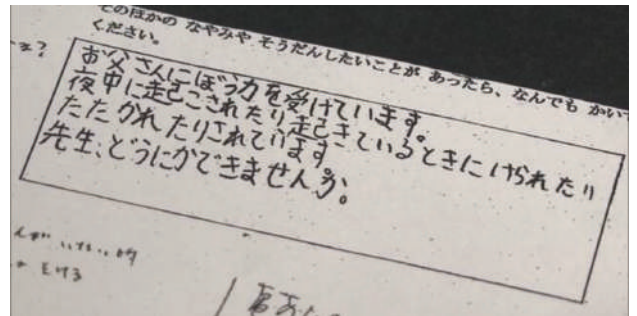 そのほかの なやみや そうだんしたいことが あったら、なんでも かいて
ください。
お父さんにぼう力を受けています。
夜中に起こされたり起きているときにけられたり
たたかれたりされています。
先生、どうにかできませんか。